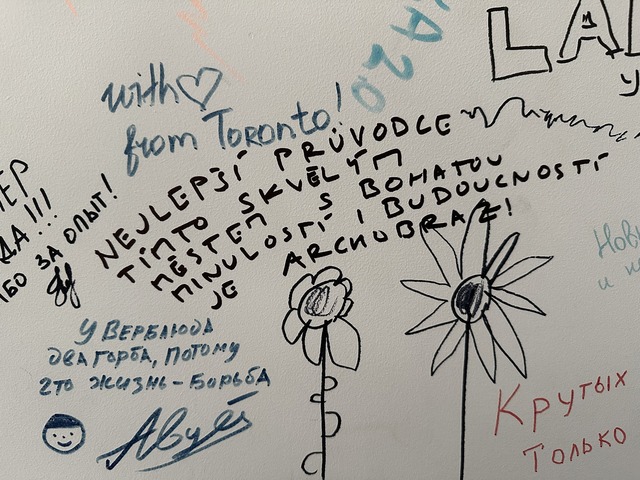 КА 2.0
with ♡
from Toronto!
NEJLEPŠÍ PRŮVODCE
TÍMTO SKVĚLÝM
MĚSTEM S BOHATOU
MINULOSTÍ I BUDOUCNOSTÍ
JE ARCHOBRAZ!
ЗА ОПЫТ!
У ВЕРБЛЮДА
ДВА ГОРБА, ПОТОМУ
ЧТО ЖИЗНЬ - БОРЬБА
Крутых
Только